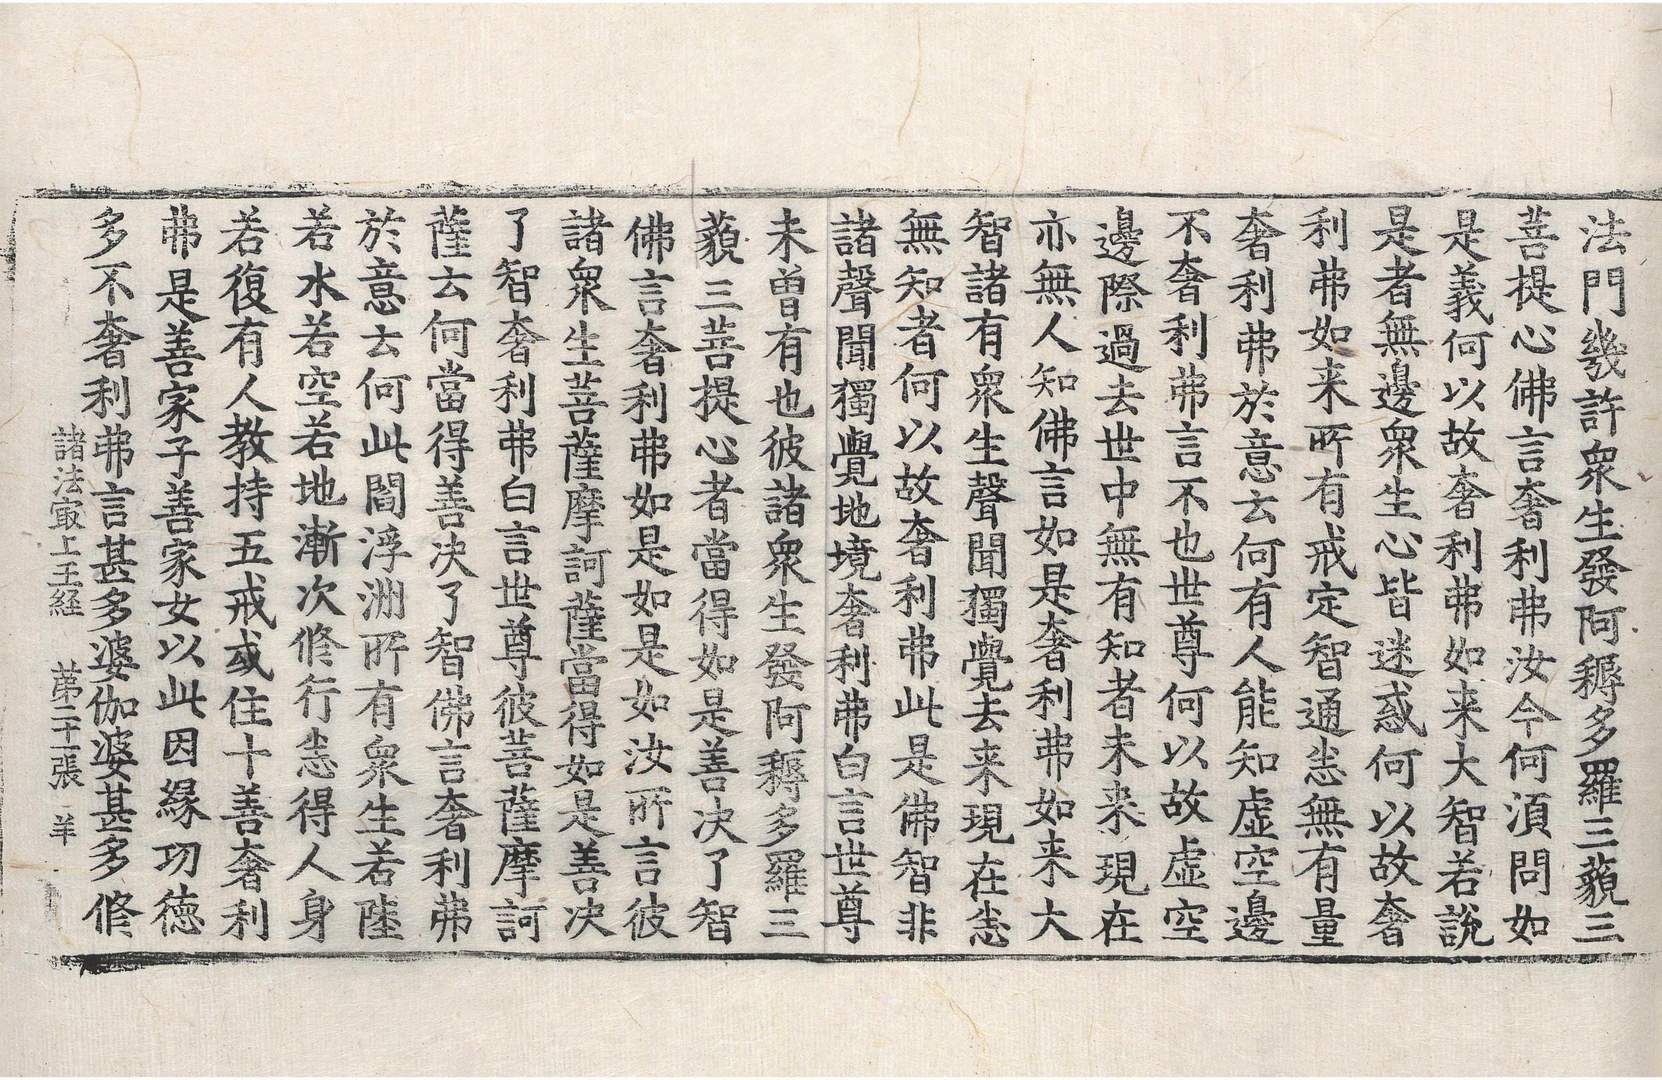 法門幾許衆生發阿耨多羅三藐三
菩提心佛言奢利弗汝今何湏問如
是義何以故奢利弗如来大智若說
是者無邊衆生心皆迷惑何以故奢
利弗如来所有戒定智通恙無有量
奢利弗於意去何有人能知虛空邊
不奢利弗言不也世尊何以故虛空
邊際過去世中無有知者未来現在
亦無人知佛言如是奢利弗如来大
智諸有衆生聲聞獨覺去来現在恙
無知者何以故奢利弗此是佛智非
諸聲聞獨覺地境奢利弗白言世尊
未曾有也彼諸衆生發阿耨多羅三
藐三菩提心者當得如是善决了智
佛言奢利弗如是如是如汝所言彼
諸衆生菩薩摩訶薩當得如是善决
了智奢利弗白言世尊彼菩薩摩訶
薩去何當得善决了智佛言奢利弗
於意去何此閻浮洲所有衆生若陸
若水若空若地漸次修行恙得人身
若復有人教持五戒或住十善奢利
弗是善家子善家女以此因緣功德
多不奢利弗言甚多婆伽婆甚多修
諸法㝡上王経 苐二十二張 羊